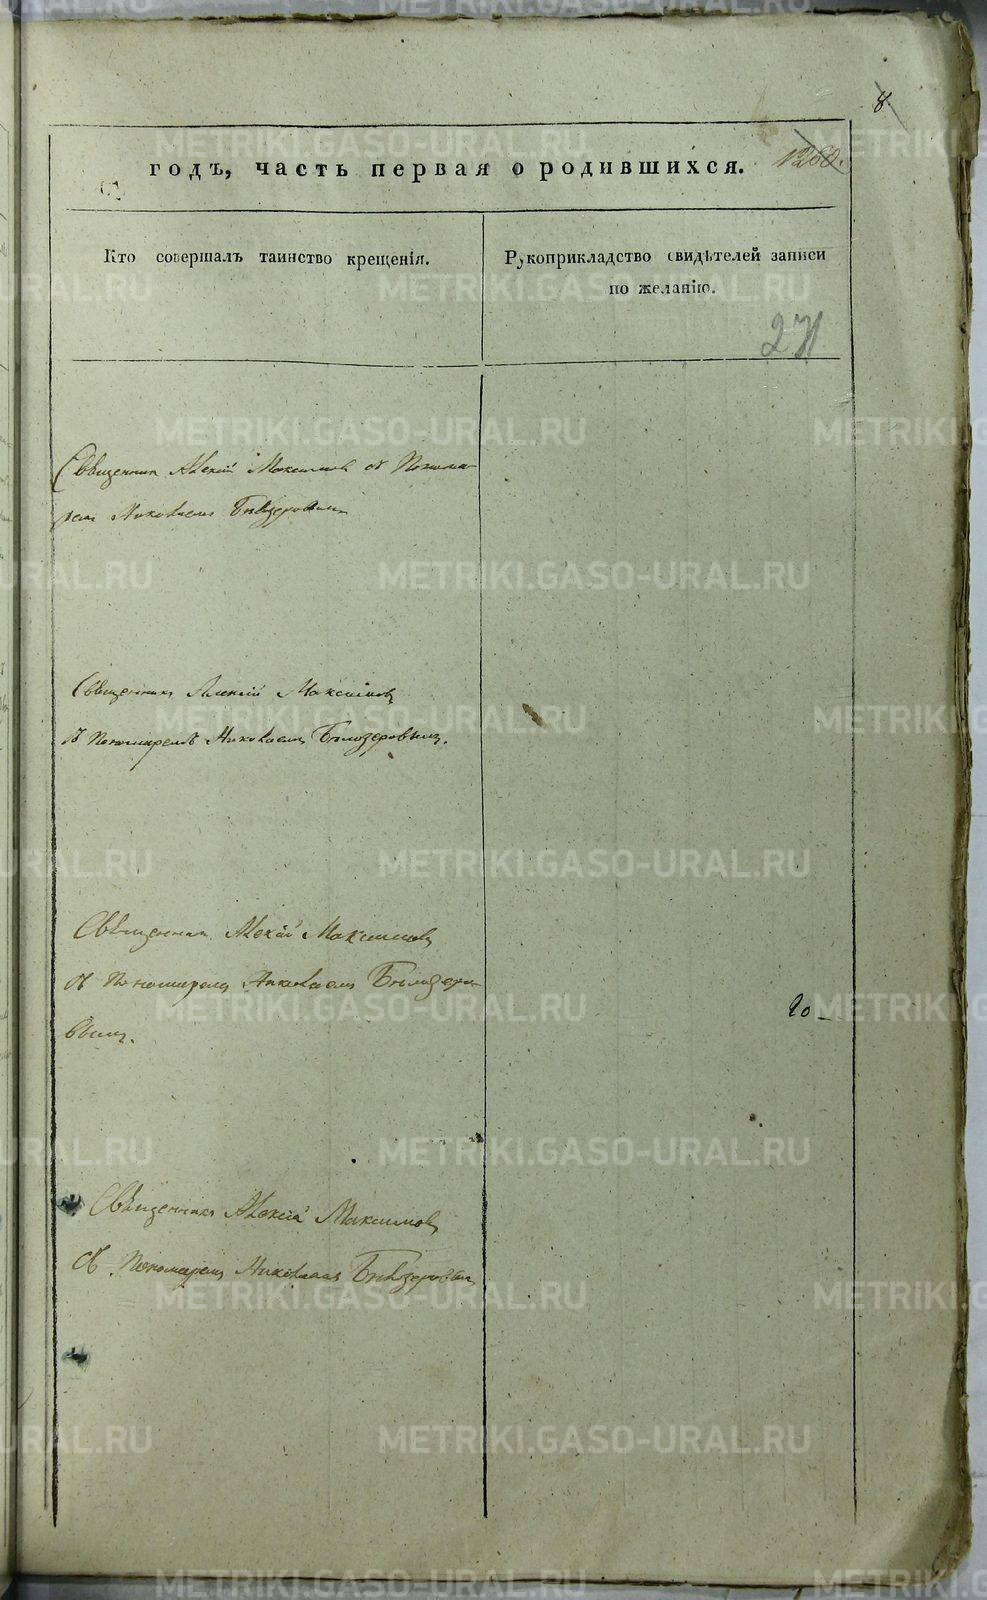 8
годъ, часть первая о родившихся. 1260.
Кто совершалъ таинство крещенія.
Рукоприкладство свидѣтелей записи
по желанію.
271
Священникъ Алексій Максимовъ съ Понома-
ремъ Николаемъ Бѣлозеровымъ
Священникъ Алексій Максимовъ
съ Пономаремъ Николаемъ Бѣлозеровымъ.
Священникъ Алексій Максимовъ
съ Пономаремъ Николаемъ Бѣлозеро-
вымъ.
20
Священникъ Алексій Максимовъ
съ Пономаремъ Николаемъ Бѣлозеровымъ
METRIKI.GASO-URAL.RU